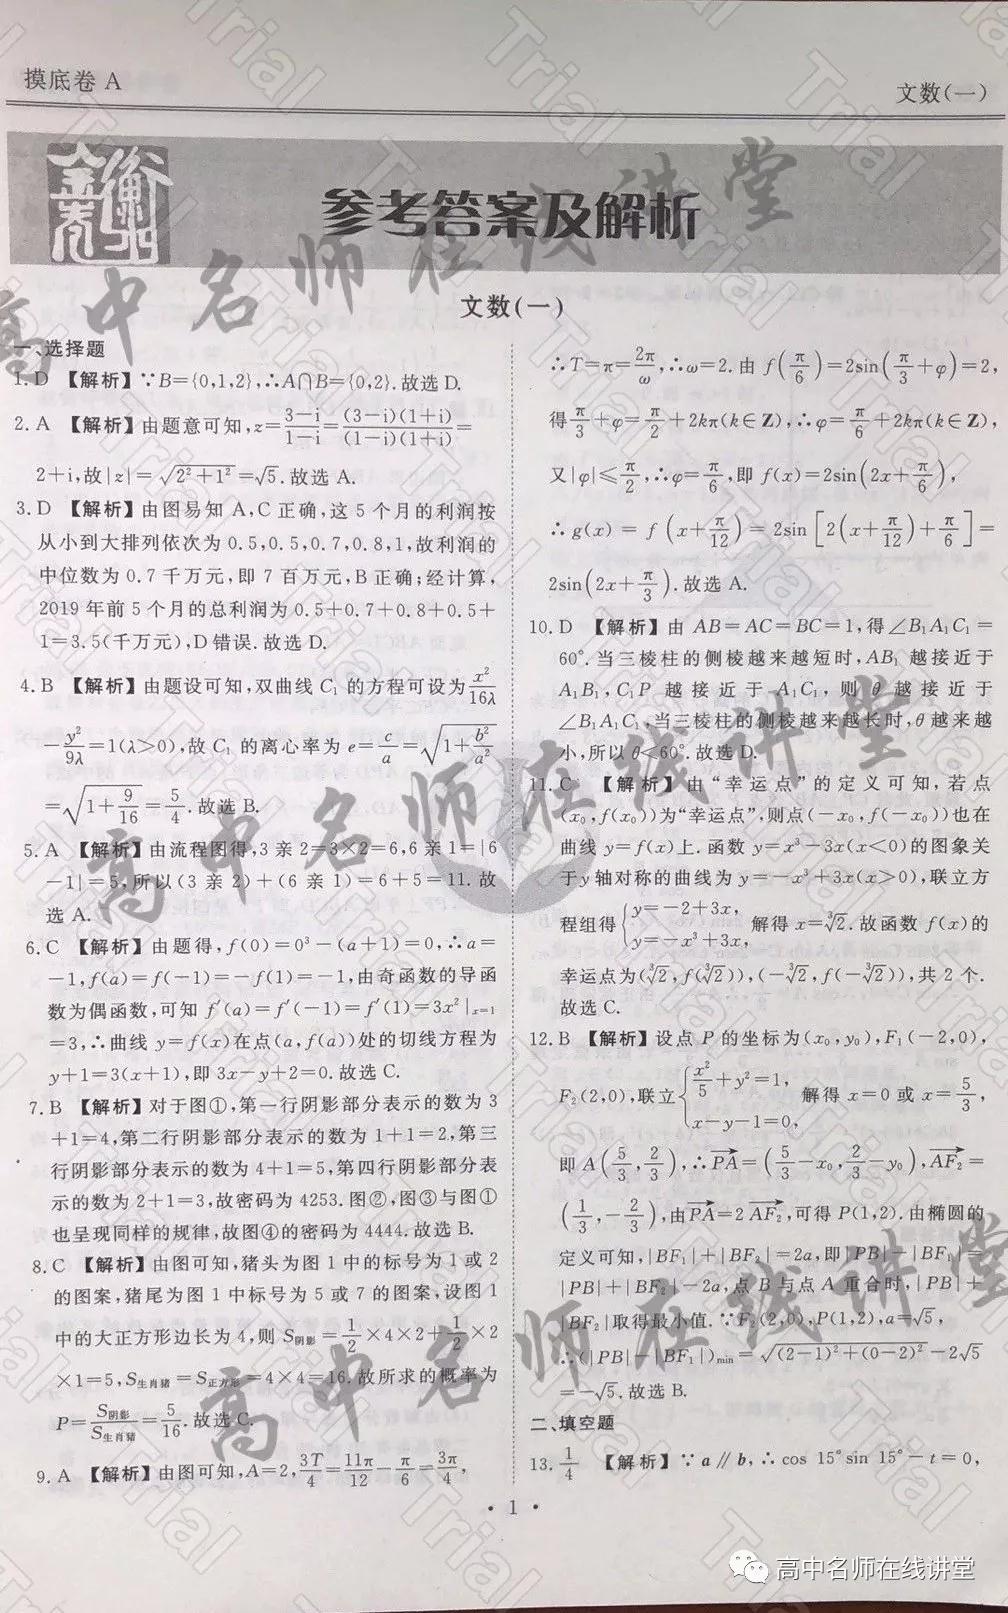 摸底卷 A
文数(一)
金衡卷
参考答案及解析
文数(一)
一、选择题
1. D 【解析】∵B={0,1,2},∴A∩B={0,2}.故选 D.
2. A 【解析】由题意可知,z=\frac{3-i}{1-i}=\frac{(3-i)(1+i)}{(1-i)(1+i)}=
2+i,故|z|=\sqrt{2²+1²}=\sqrt{5}.故选 A.
3. D 【解析】由图易知 A,C 正确,这 5 个月的利润按
从小到大排列依次为 0.5,0.5,0.7,0.8,1,故利润的
中位数为 0.7 千万元,即 7 百万元,B 正确;经计算,
2019 年前 5 个月的总利润为 0.5+0.7+0.8+0.5+
1=3.5(千万元),D 错误.故选 D.
4. B 【解析】由题设可知,双曲线 C₁ 的方程可设为\frac{x²}{16λ}
-\frac{y²}{9λ}=1(λ>0),故 C₁ 的离心率为 e=\frac{c}{a}=\sqrt{1+\frac{b²}{a²}}
=\sqrt{1+\frac{9}{16}}=\frac{5}{4}.故选 B.
5. A 【解析】由流程图得,3 亲 2=3×2=6,6 亲 1=|6
-1|=5,所以(3 亲 2)+(6 亲 1)=6+5=11.故
选 A.
6. C 【解析】由题得,f(0)=0³-(a+1)=0,∴a=
-1,f(a)=f(-1)=-f(1)=-1,由奇函数的导函
数为偶函数,可知 f′(a)=f′(-1)=f′(1)=3x²|ₓ₌₁
=3,∴曲线 y=f(x)在点(a,f(a))处的切线方程为
y+1=3(x+1),即 3x-y+2=0.故选 C.
7. B 【解析】对于图①,第一行阴影部分表示的数为 3
+1=4,第二行阴影部分表示的数为 1+1=2,第三
行阴影部分表示的数为 4+1=5,第四行阴影部分表
示的数为 2+1=3,故密码为 4253.图②,图③与图①
也呈现同样的规律,故图④的密码为 4444.故选 B.
8. C 【解析】由图可知,猪头为图 1 中的标号为 1 或 2
的图案,猪尾为图 1 中标号为 5 或 7 的图案,设图 1
中的大正方形边长为 4,则 S阴影=\frac{1}{2}×4×2+\frac{1}{2}×2
×1=5,S生肖猪=S正方形=4×4=16.故所求的概率为
P=\frac{S阴影}{S生肖猪}=\frac{5}{16}.故选 C.
9. A 【解析】由图可知,A=2,\frac{3T}{4}=\frac{11π}{12}-\frac{π}{6}=\frac{3π}{4},
∴T=π=\frac{2π}{ω},∴ω=2.由 f(\frac{π}{6})=2sin(\frac{π}{3}+φ)=2,
得\frac{π}{3}+φ=\frac{π}{2}+2kπ(k∈Z),∴φ=\frac{π}{6}+2kπ(k∈Z),
又|φ|≤\frac{π}{2},∴φ=\frac{π}{6},即 f(x)=2sin(2x+\frac{π}{6}),
∴g(x)=f(x+\frac{π}{12})=2sin[2(x+\frac{π}{12})+\frac{π}{6}]=
2sin(2x+\frac{π}{3}).故选 A.
10. D 【解析】由 AB=AC=BC=1,得∠B₁A₁C₁=
60°.当三棱柱的侧棱越来越短时,AB₁ 越接近于
A₁B₁,C₁P 越接近于 A₁C₁,则 θ 越接近于
∠B₁A₁C₁,当三棱柱的侧棱越来越长时,θ 越来越
小,所以 θ<60°.故选 D.
11. C 【解析】由“幸运点”的定义可知,若点
(x₀,f(x₀))为“幸运点”,则点(-x₀,f(-x₀))也在
曲线 y=f(x)上.函数 y=x³-3x(x<0)的图象关
于 y 轴对称的曲线为 y=-x³+3x(x>0),联立方
程组得{y=-2+3x, y=-x³+3x, 解得 x=\sqrt[3]{2}.故函数 f(x)的
幸运点为(\sqrt[3]{2},f(\sqrt[3]{2})),(-\sqrt[3]{2},f(-\sqrt[3]{2})),共 2 个.
故选 C.
12. B 【解析】设点 P 的坐标为(x₀,y₀),F₁(-2,0),
F₂(2,0),联立{\frac{x²}{5}+y²=1, x-y-1=0, 解得 x=0 或 x=\frac{5}{3},
即 A(\frac{5}{3},\frac{2}{3}),∴\overrightarrow{PA}=(\frac{5}{3}-x₀,\frac{2}{3}-y₀),\overrightarrow{AF₂}=
(\frac{1}{3},-\frac{2}{3}),由\overrightarrow{PA}=2\overrightarrow{AF₂},可得 P(1,2).由椭圆的
定义可知,|BF₁|+|BF₂|=2a,即|PB|-|BF₁|=
|PB|+|BF₂|-2a,点 B 与点 A 重合时,|PB|+
|BF₂|取得最小值.∵F₂(2,0),P(1,2),a=\sqrt{5},
∴(|PB|-|BF₁|)min=\sqrt{(2-1)²+(0-2)²}-2\sqrt{5}
=-\sqrt{5}.故选 B.
二、填空题
13. \frac{1}{4} 【解析】∵a∥b,∴cos 15°sin 15°-t=0,
· 1 ·
高中名师在线讲堂
高中名师在线讲堂
高中名师在线讲堂
高中名师在线讲堂